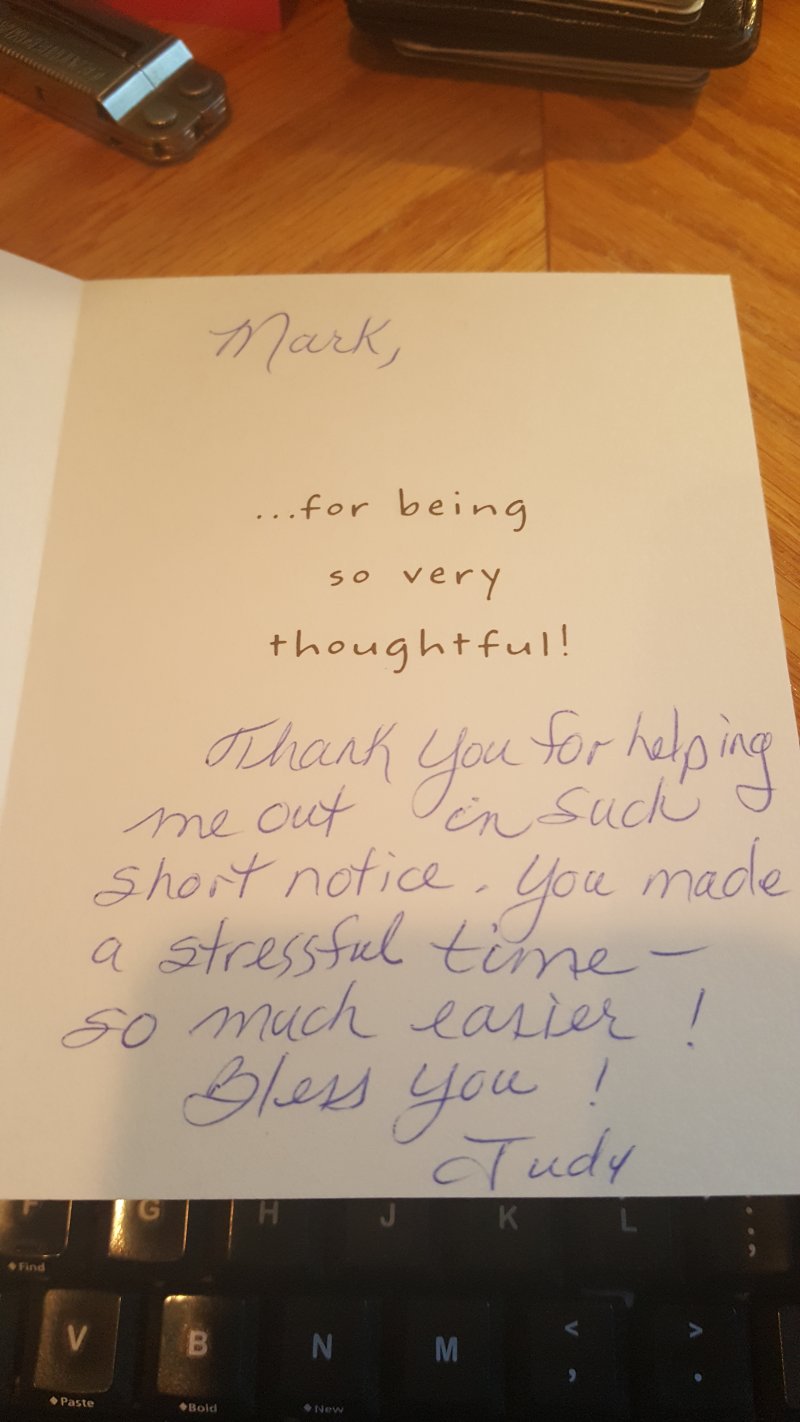 Mark,
...for being
so very
thoughtful!
Thank you for helping
me out in such
short notice. You made
a stressful time —
so much easier!
Bless you!
Judy
F G H J K L ;
Find
V B N M < ,  > .
Paste Bold New